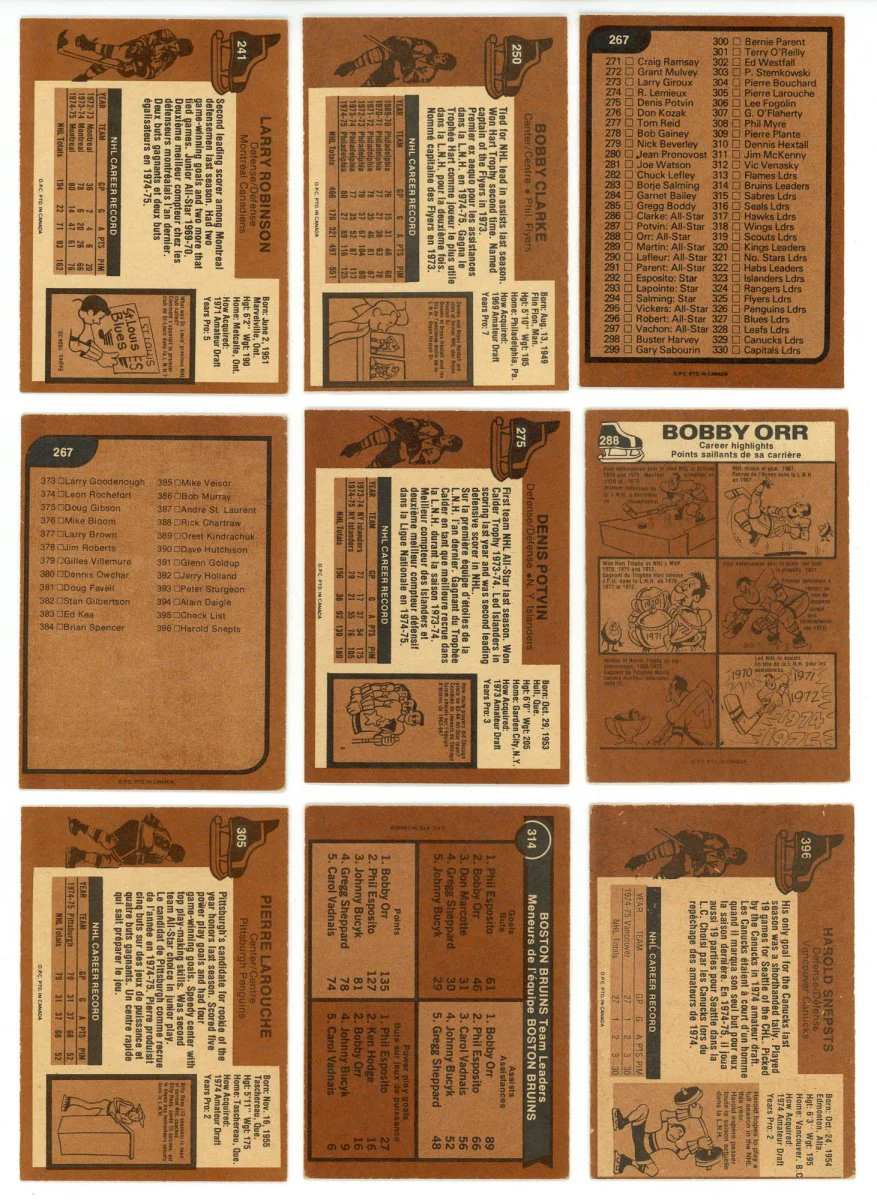 241
LARRY ROBINSON
Defense/Défense
Montreal Canadiens
Second leading scorer among Montreal
defensemen last season. Had two
game-winning goals and two more that
tied games. Junior All-Star 1969-70.
Deuxième meilleur compteur chez les
défenseurs montréalais l'an dernier.
Deux buts gagnants et deux buts
égalisateurs en 1974-75.
NHL CAREER RECORD
YEAR TEAM GP G A PTS PIM
1972-73 Montreal 36 2 4 6 20
1973-74 Montreal 78 6 20 26 66
1974-75 Montreal 80 14 47 61 76
NHL Totals 194 22 71 93 162
Born: June 2, 1951
Marvelville, Ont.
Hgt: 6'2" Wgt: 190
Home: Metcalfe, Ont.
How Acquired:
1971 Amateur Draft
Years Pro: 5
ST. LOUIS
BLUES
O.P.C. PTD. IN CANADA
250
BOBBY CLARKE
Center/Centre ● Phil. Flyers
Tied for NHL lead in assists last season.
Won Hart Trophy second time. Named
captain of the Flyers in 1973.
Premier ex aequo pour les assistances
dans la L.N.H. en 1974-75. Gagna le
Trophée Hart comme joueur le plus utile
dans la L.N.H. pour la deuxième fois.
Nommé capitaine des Flyers en 1973.
NHL CAREER RECORD
YEAR TEAM GP G A PTS PIM
1969-70 Philadelphia 76 15 31 46 68
1970-71 Philadelphia 77 27 36 63 78
1971-72 Philadelphia 78 35 46 81 87
1972-73 Philadelphia 78 37 67 104 80
1973-74 Philadelphia 77 35 52 87 113
1974-75 Philadelphia 80 27 89 116 125
NHL Totals 466 176 321 497 551
Born: Aug. 13, 1949
Flin Flon, Man.
Hgt: 5'10" Wgt: 185
Home: Philadelphia, Pa.
How Acquired:
1969 Amateur Draft
Years Pro: 7
O.P.C. PTD. IN CANADA
267
271 Craig Ramsay
272 Grant Mulvey
273 Larry Giroux
274 R. Lemieux
275 Denis Potvin
276 Don Kozak
277 Tom Reid
278 Bob Gainey
279 Nick Beverley
280 Jean Pronovost
281 Joe Watson
282 Chuck Lefley
283 Borje Salming
284 Garnet Bailey
285 Gregg Boddy
286 Clarke: All-Star
287 Potvin: All-Star
288 Orr: All-Star
289 Martin: All-Star
290 Lafleur: All-Star
291 Parent: All-Star
292 Esposito: Star
293 Lapointe: Star
294 Salming: Star
295 Vickers: All-Star
296 Robert: All-Star
297 Vachon: All-Star
298 Buster Harvey
299 Gary Sabourin
300 Bernie Parent
301 Terry O'Reilly
302 Ed Westfall
303 P. Stemkowski
304 Pierre Bouchard
305 Pierre Larouche
306 Lee Fogolin
307 G. O'Flaherty
308 Phil Myre
309 Pierre Plante
310 Dennis Hextall
311 Jim McKenny
312 Vic Venasky
313 Flames Ldrs
314 Bruins Leaders
315 Sabres Ldrs
316 Seals Ldrs
317 Hawks Ldrs
318 Wings Ldrs
319 Scouts Ldrs
320 Kings Leaders
321 No. Stars Ldrs
322 Habs Leaders
323 Islanders Ldrs
324 Rangers Ldrs
325 Flyers Ldrs
326 Penguins Ldrs
327 Blues Ldrs
328 Leafs Ldrs
329 Canucks Ldrs
330 Capitals Ldrs
O.P.C. PTD. IN CANADA
267
373 Larry Goodenough
374 Leon Rochefort
375 Doug Gibson
376 Mike Bloom
377 Larry Brown
378 Jim Roberts
379 Gilles Villemure
380 Dennis Owchar
381 Doug Favell
382 Stan Gilbertson
383 Ed Kea
384 Brian Spencer
385 Mike Veisor
386 Bob Murray
387 Andre St. Laurent
388 Rick Chartraw
389 Orest Kindrachuk
390 Dave Hutchison
391 Glenn Goldup
392 Jerry Holland
393 Peter Sturgeon
394 Alain Daigle
395 Check List
396 Harold Snepts
O.P.C. PTD. IN CANADA
275
DENIS POTVIN
Defense/Défense ● NY Islanders
First team NHL All-Star last season. Won
Calder Trophy 1973-74. Led Islanders in
scoring last year and was second leading
defensive scorer in NHL.
Sur la première équipe d'étoiles de la
L.N.H. l'an dernier. Gagnant du Trophée
Calder en tant que meilleure recrue dans
la L.N.H. durant la saison 1973-74.
Meilleur compteur des Islanders et
deuxième meilleur compteur défensif
dans la Ligue Nationale en 1974-75.
NHL CAREER RECORD
YEAR TEAM GP G A PTS PIM
1973-74 NY Islanders 77 17 37 54 175
1974-75 NY Islanders 79 21 55 76 105
NHL Totals 156 38 92 130 180
Born: Oct. 29, 1953
Hull, Que.
Hgt: 6'0" Wgt: 205
Home: Garden City, N.Y.
How Acquired:
1973 Amateur Draft
Years Pro: 3
O.P.C. PTD. IN CANADA
288
BOBBY ORR
Career highlights
Points saillants de sa carrière
NHL recrue of year, 1967.
Recrue de l'année dans la L.N.H.
en 1967.
Won Hart Trophy as NHL's MVP
1970, 1971 and 1972.
1971
1970
1971
1972
1974
1975
O.P.C. PTD. IN CANADA
305
PIERRE LAROUCHE
Center/Centre
Pittsburgh Penguins
Pittsburgh's candidate for rookie of the
year honors last season. Score five
power play goals and had four
game-winning goals. Speedy center with
top play-making skills. Was second
team All-Star choice in junior play.
Le candidat de Pittsburgh comme recrue
de l'année en 1974-75. Pierre produisit
cinq buts sur des jeux de puissance et
quatre buts gagnants. Un centre rapide
qui sait préparer le jeu.
NHL CAREER RECORD
YEAR TEAM GP G A PTS PIM
1974-75 Pittsburgh 79 31 37 68 52
NHL Totals 79 31 37 68 52
Born: Nov. 16, 1955
Taschereau, Que.
Hgt: 5'11" Wgt: 175
Home: Taschereau, Que.
How Acquired:
1974 Amateur Draft
Years Pro: 2
O.P.C. PTD. IN CANADA
314
BOSTON BRUINS Team Leaders
Meneurs de l'équipe BOSTON BRUINS
Goals
Buts
1. Phil Esposito 61
2. Bobby Orr 46
3. Don Marcotte 31
4. Gregg Sheppard 30
5. Johnny Bucyk 29
Assists
Assistances
1. Bobby Orr 89
2. Phil Esposito 66
3. Carol Vadnais 56
4. Johnny Bucyk 52
5. Gregg Sheppard 48
Points
1. Bobby Orr 135
2. Phil Esposito 127
3. Johnny Bucyk 81
4. Gregg Sheppard 78
5. Carol Vadnais 74
Power play goals
Buts sur jeux de puissance
1. Phil Esposito 27
2. Ken Hodge 16
2. Bobby Orr 16
4. Johnny Bucyk 9
5. Carol Vadnais 6
396
HAROLD SNEPSTS
Defense/Défense
Vancouver Canucks
His only goal for the Canucks last
season was a shorthanded tally. Played
19 games for Seattle of the CHL. Picked
by the Canucks in 1974 amateur draft
Les Canucks étaient à court d'un homme
quand il marqua son seul but pour eux
la saison dernière. En 1974-75, il joua
aussi 19 parties pour Seattle dans la
L.C. Choisi par les Canucks lors du
repêchage des amateurs de 1974.
NHL CAREER RECORD
YEAR TEAM GP G A PTS PIM
1974-75 Vancouver 27 1 2 3 30
NHL Totals 27 1 2 3 30
Born: Oct. 24, 1954
Edmonton, Alta.
Hgt: 6'3" Wgt: 195
Home: Vancouver, B.C.
How Acquired:
1974 Amateur Draft
Years Pro: 2
Harold hopes to play a
full season in the NHL
this year.